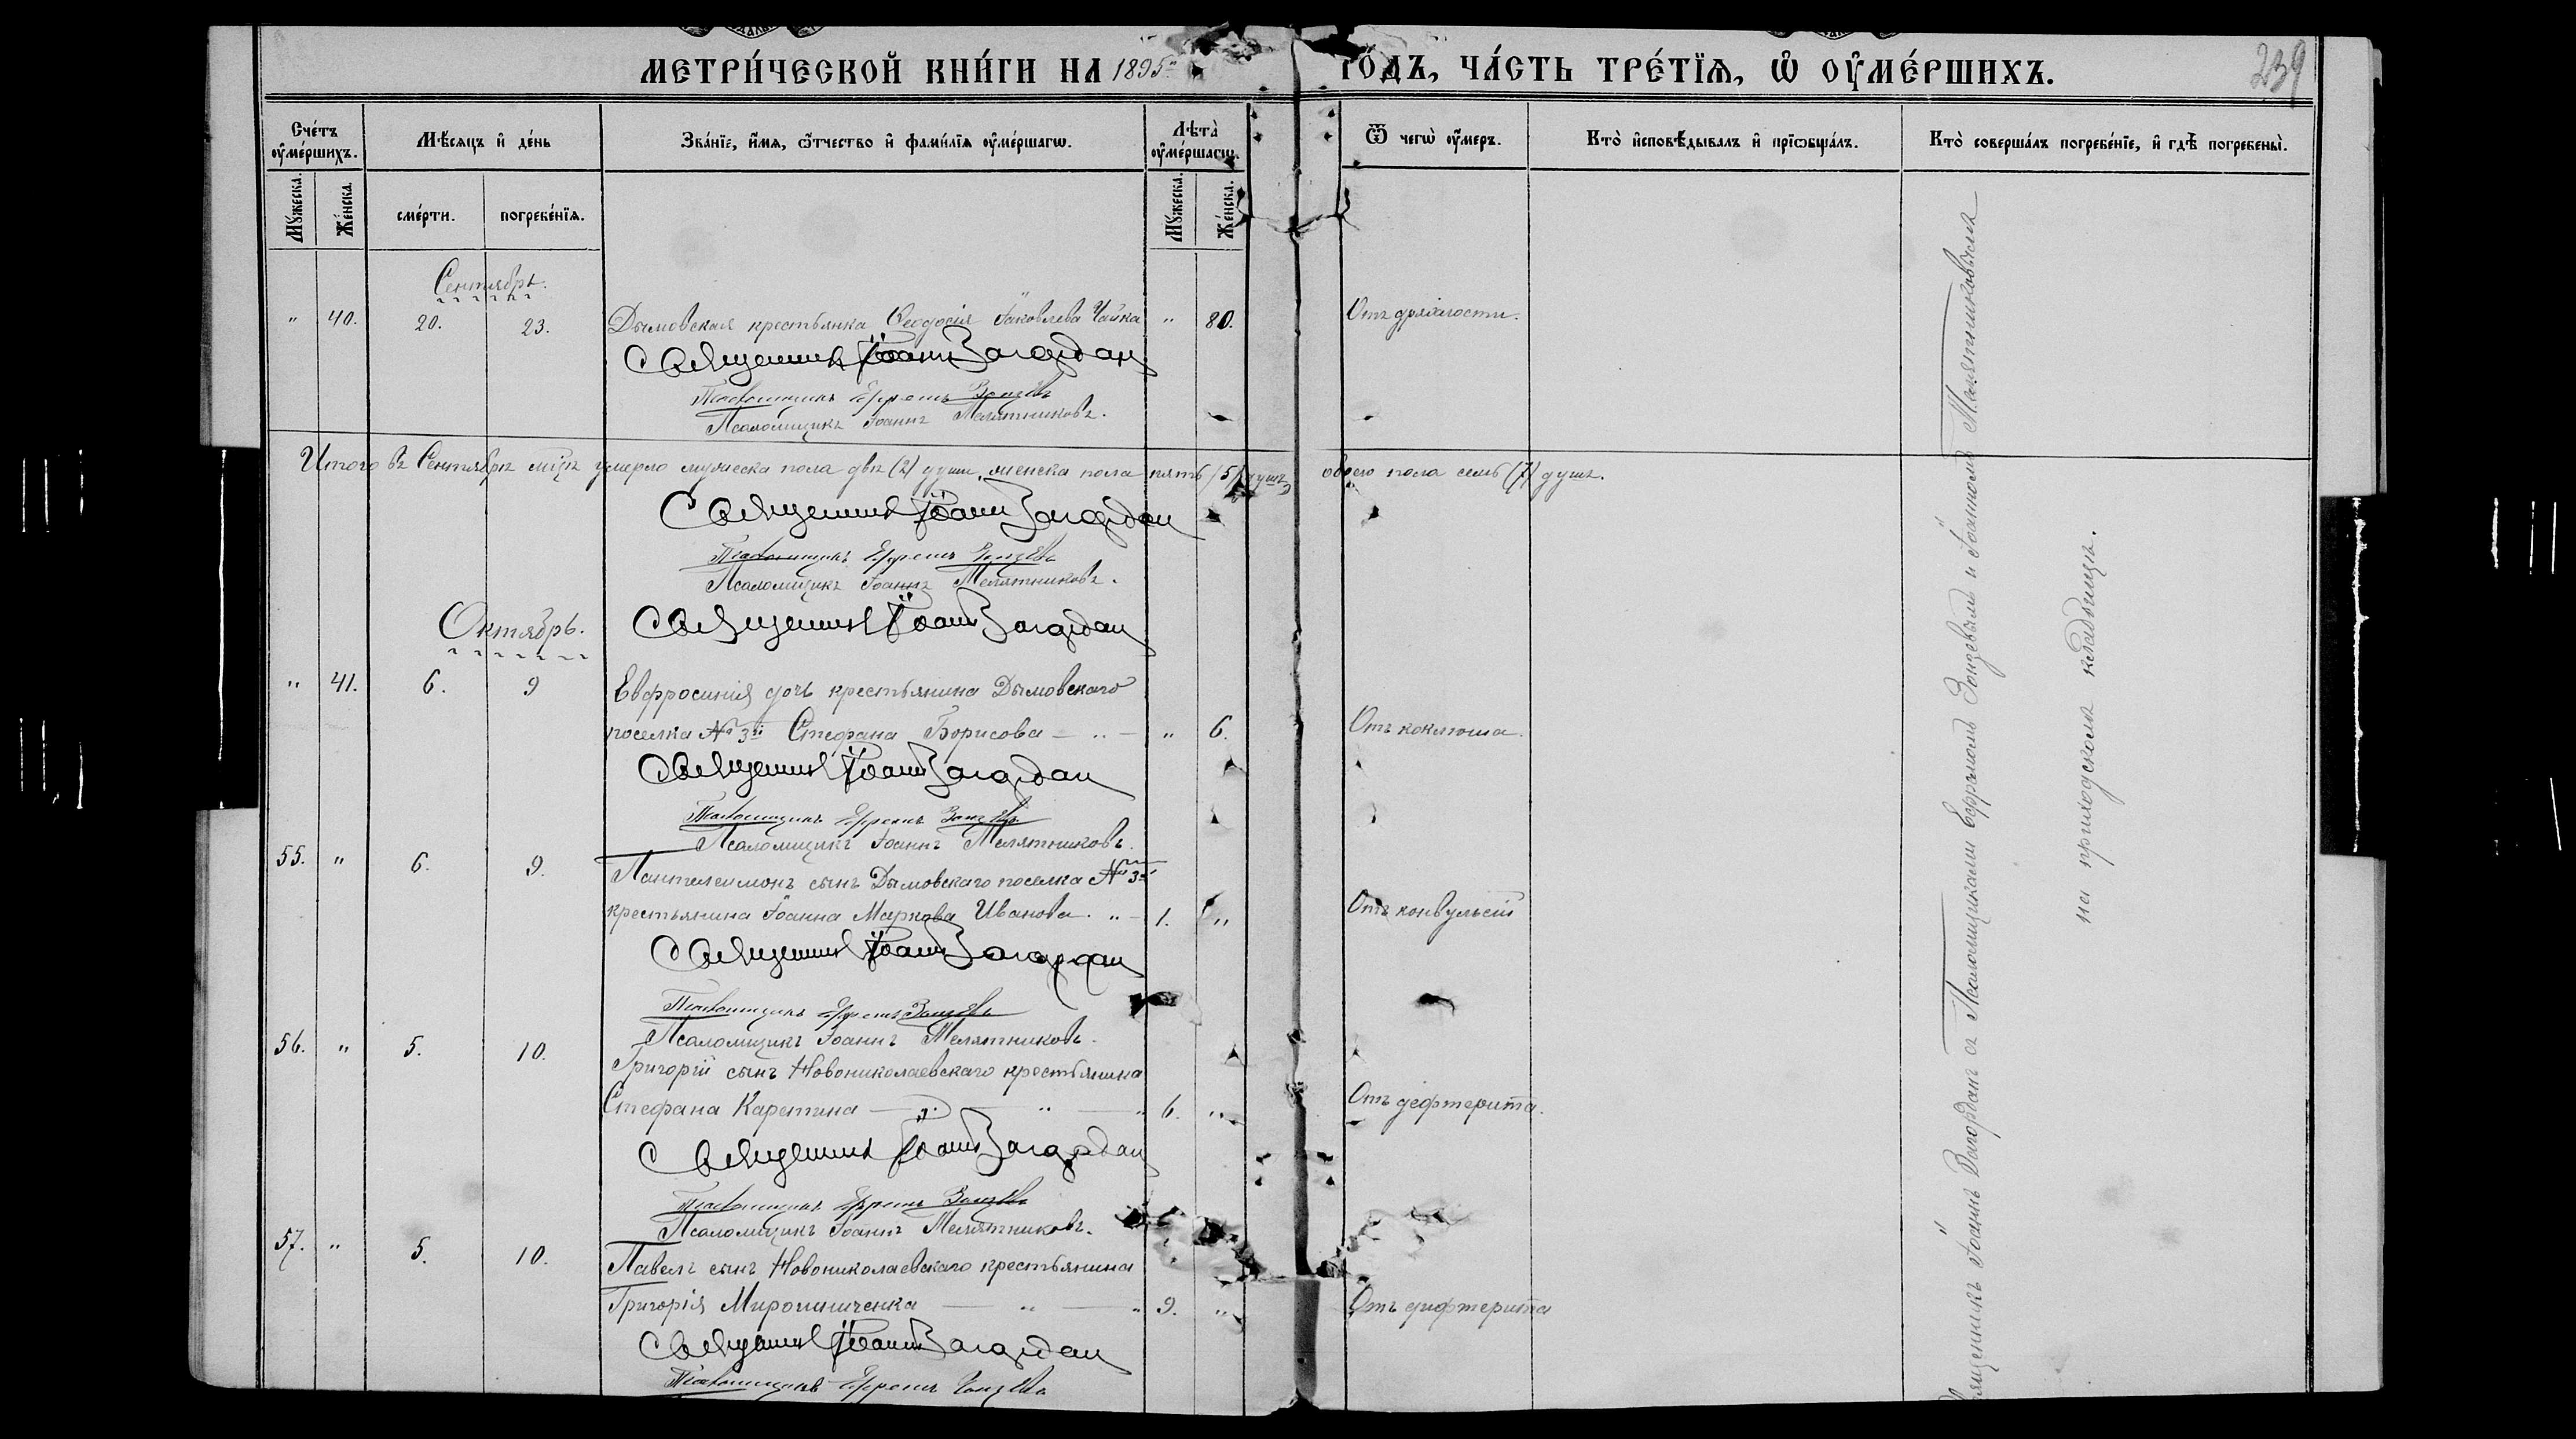 МЕТРИ́ЧЕСКОЙ КНИ́ГИ НА 1895й ГО́ДЪ, ЧА́СТЬ ТРЕ́ТЇѦ, Ѡ҆ ОУ҆МЕ́РШИХЪ.
239
Сче́тъ оу҆ме́ршихъ.
Мꙋ́жеска.
Же́нска.
Мѣ́сяцъ и҆ де́нь
сме́рти.
погребе́нїѧ.
Зва́нїе, и҆́мѧ, ѻ҆́тчество и҆ фами́лїѧ оу҆ме́ршагѡ.
Лѣта̀ оу҆ме́ршагѡ.
Мꙋ́жеска.
Же́нска.
Ѿ чегѡ̀ оу҆́меръ.
Кто̀ и҆сповѣ́дывалъ и҆ прїѻбща́лъ.
Кто̀ соверша́лъ погребе́нїе, и҆ гдѣ̀ погребены̀.
Сентябрь.
" 40. 20. 23. Дымовская крестьянка Ѳеодосія Іаковлева Чайка " 80. Отъ дряхлости.
Священникъ Іоаннъ Загордан
Псаломщикъ Ефремъ
Псаломщикъ Іоаннъ Мелятниковъ.
Итого въ Сентябрѣ м-цѣ умерло мужеска пола двѣ (2) души, женска пола пять (5) душъ, обоего пола семь (7) душъ.
Священникъ Іоаннъ Загордан
Псаломщикъ Ефремъ
Псаломщикъ Іоаннъ Мелятниковъ.
Октябрь.
Священникъ Іоаннъ Загордан
" 41. 6. 9 Евфросинія дочь крестьянина Дымовскаго
поселка № 3й Стефана Борисова — " — " 6. Отъ коклюша.
Священникъ Іоаннъ Загордан
Псаломщикъ Ефремъ
Псаломщикъ Іоаннъ Мелятниковъ.
55. " 6. 9. Пантелеимонъ сынъ Дымовскаго поселка № 3й
крестьянина Іоанна Маркова Иванова. " — 1. " Отъ конвульсій
Священникъ Іоаннъ Загордан
Псаломщикъ Ефремъ
Псаломщикъ Іоаннъ Мелятниковъ.
56. " 5. 10. Григорій сынъ Новониколаевскаго крестьянина
Стефана Каретина — " — " — " 6. " Отъ дефтерита.
Священникъ Іоаннъ Загордан
Псаломщикъ Ефремъ
Псаломщикъ Іоаннъ Мелятниковъ.
57. " 5. 10. Павелъ сынъ Новониколаевскаго крестьянина
Григорія Мирошниченка — " — " 9. " Отъ дифтерита
Священникъ Іоаннъ Загордан
Псаломщикъ Ефремъ
Священникъ Іоаннъ Загорданъ съ Псаломщиками Ефремомъ и Іоанномъ Мелятниковымъ
на приходскомъ кладбищѣ.